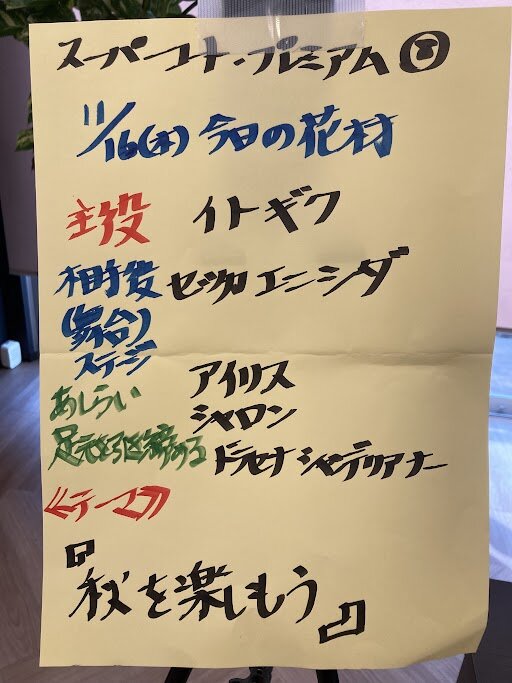 スーパーコート・プレミアム
11/16(木) 今日の花材
主役 イトギク
相手役 セッカエニシダ
(舞台)
ステージ
あしらい アイリス
シャロン
足元を引き締める ドラセナ シャンデリアナー
《テーマ》
『秋を楽しもう』